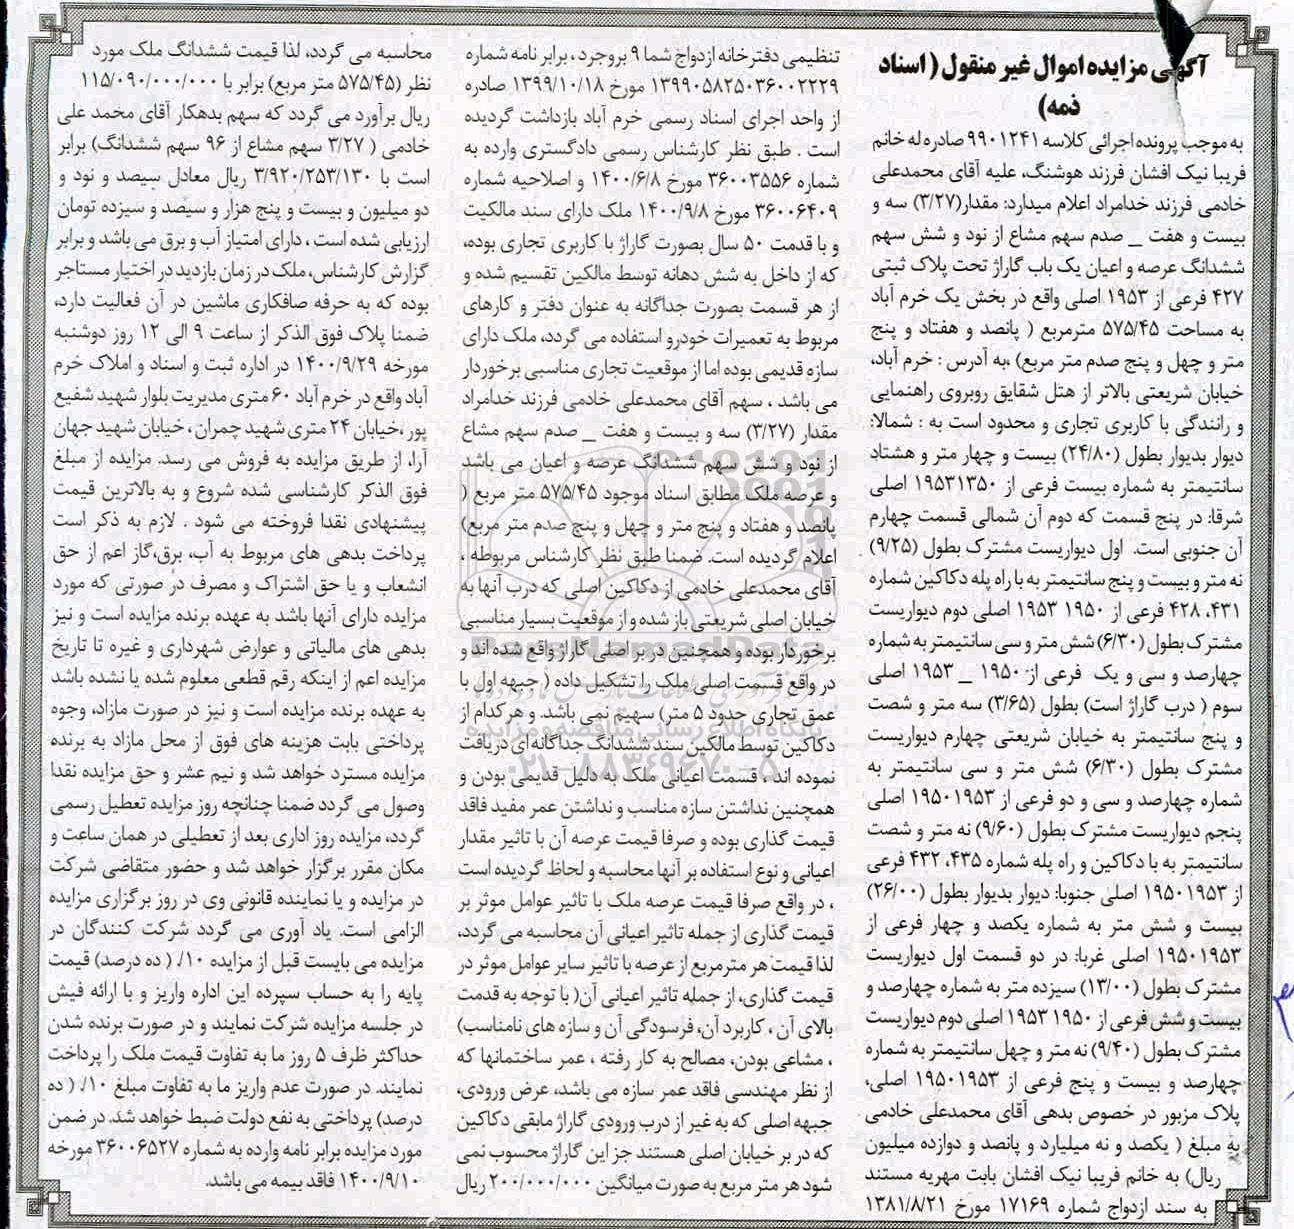 آگهی مزایده اموال غیر منقول ( اسناد
ذمه)
به موجب پرونده اجرائی کلاسه ۹۹۰۱۲۴۱ صادره له خانم
فریبا نیک افشان فرزند هوشنگ، علیه آقای محمدعلی
خادمی فرزند خدامراد اعلام میدارد: مقدار(۳/۲۷) سه و
بیست و هفت _ صدم سهم مشاع از نود و شش سهم
ششدانگ عرصه و اعیان یک باب گاراژ تحت پلاک ثبتی
۴۲۷ فرعی از ۱۹۵۳ اصلی واقع در بخش یک خرم آباد
به مساحت ۵۷۵/۴۵ مترمربع ( پانصد و هفتاد و پنج
متر و چهل و پنج صدم متر مربع) ،به آدرس : خرم آباد،
خیابان شریعتی بالاتر از هتل شقایق روبروی راهنمایی
و رانندگی با کاربری تجاری و محدود است به : شمالا:
دیوار بدیوار بطول (۲۴/۸۰) بیست و چهار متر و هشتاد
سانتیمتر به شماره بیست فرعی از ۱۹۵۳۱۳۵۰ اصلی
شرقا: در پنج قسمت که دوم آن شمالی قسمت چهارم
آن جنوبی است. اول دیواریست مشترک بطول (۹/۲۵)
نه متر و بیست و پنج سانتیمتر به با راه پله دکاکین شماره
۴۳۱، ۴۲۸ فرعی از ۱۹۵۰ ۱۹۵۳ اصلی دوم دیواریست
مشترک بطول (۶/۳۰) شش متر و سی سانتیمتر به شماره
چهارصد و سی و یک فرعی از ۱۹۵۰ _ ۱۹۵۳ اصلی
سوم ( درب گاراژ است) بطول (۳/۶۵) سه متر و شصت
و پنج سانتیمتر به خیابان شریعتی چهارم دیواریست
مشترک بطول (۶/۳۰) شش متر و سی سانتیمتر به
شماره چهارصد و سی و دو فرعی از ۱۹۵۰۱۹۵۳ اصلی
پنجم دیواریست مشترک بطول (۹/۶۰) نه متر و شصت
سانتیمتر به با دکاکین و راه پله شماره ۴۳۵، ۴۳۲ فرعی
از ۱۹۵۰۱۹۵۳ اصلی جنوبا: دیوار بدیوار بطول (۲۶/۰۰)
بیست و شش متر به شماره یکصد و چهار فرعی از
۱۹۵۰۱۹۵۳ اصلی غربا: در دو قسمت اول دیواریست
مشترک بطول (۱۳/۰۰) سیزده متر به شماره چهارصد و
بیست و شش فرعی از ۱۹۵۰ ۱۹۵۳ اصلی دوم دیواریست
مشترک بطول (۹/۴۰) نه متر و چهل سانتیمتر به شماره
چهارصد و بیست و پنج فرعی از ۱۹۵۰۱۹۵۳ اصلی،
پلاک مزبور در خصوص بدهی آقای محمدعلی خادمی
به مبلغ ( یکصد و نه میلیارد و پانصد و دوازده میلیون
ریال) به خانم فریبا نیک افشان بابت مهریه مستند
به سند ازدواج شماره ۱۷۱۶۹ مورخ ۱۳۸۱/۸/۲۱
تنظیمی دفترخانه ازدواج شما ۹ بروجرد ، برابر نامه شماره
۱۳۹۹۰۵۸۲۵۰۳۶۰۰۲۲۲۹ مورخ ۱۳۹۹/۱۰/۱۸ صادره
از واحد اجرای اسناد رسمی خرم آباد بازداشت گردیده
است . طبق نظر کارشناس رسمی دادگستری وارده به
شماره ۳۶۰۰۳۵۵۶ مورخ ۱۴۰۰/۶/۸ و اصلاحیه شماره
۳۶۰۰۶۴۰۹ مورخ ۱۴۰۰/۹/۸ ملک دارای سند مالکیت
و با قدمت ۵۰ سال بصورت گاراژ با کاربری تجاری بوده،
که از داخل به شش دهانه توسط مالکین تقسیم شده و
از هر قسمت بصورت جداگانه به عنوان دفتر و کارهای
مربوط به تعمیرات خودرو استفاده می گردد، ملک دارای
سازه قدیمی بوده اما از موقعیت تجاری مناسبی برخوردار
می باشد ، سهم آقای محمدعلی خادمی فرزند خدامراد
مقدار (۳/۲۷) سه و بیست و هفت _ صدم سهم مشاع
از نود و شش سهم ششدانگ عرصه و اعیان می باشد
و عرصه ملک مطابق اسناد موجود ۵۷۵/۴۵ متر مربع (
پانصد و هفتاد و پنج متر و چهل و پنج صدم متر مربع)
اعلام گردیده است. ضمنا طبق نظر کارشناس مربوطه ،
آقای محمدعلی خادمی از دکاکین اصلی که درب آنها به
خیابان اصلی شریعتی باز شده و از موقعیت بسیار مناسبی
برخوردار بوده و همچنین در بر اصلی گاراژ واقع شده اند و
در واقع قسمت اصلی ملک را تشکیل داده ( جبهه اول با
عمق تجاری حدود ۵ متر) سهیم نمی باشد. و هر کدام از
دکاکین توسط مالکین سند ششدانگ جداگانه ای دریافت
نموده اند ، قسمت اعیانی ملک به دلیل قدیمی بودن و
همچنین نداشتن سازه مناسب و نداشتن عمر مفید فاقد
قیمت گذاری بوده و صرفا قیمت عرصه آن با تاثیر مقدار
اعیانی و نوع استفاده بر آنها محاسبه و لحاظ گردیده است
، در واقع صرفا قیمت عرصه ملک با تاثیر عوامل موثر بر
قیمت گذاری از جمله تاثیر اعیانی آن محاسبه می گردد،
لذا قیمت هر مترمربع از عرصه با تاثیر سایر عوامل موثر در
قیمت گذاری، از جمله تاثیر اعیانی آن( با توجه به قدمت
بالای آن ، کاربرد آن، فرسودگی آن و سازه های نامناسب)
، مشاعی بودن، مصالح به کار رفته ، عمر ساختمانها که
از نظر مهندسی فاقد عمر سازه می باشد، عرض ورودی،
جبهه اصلی که به غیر از درب ورودی گاراژ مابقی دکاکین
که در بر خیابان اصلی هستند جز این گاراژ محسوب نمی
شود هر متر مربع به صورت میانگین ۲۰۰/۰۰۰/۰۰۰ ریال
محاسبه می گردد، لذا قیمت ششدانگ ملک مورد
نظر (۵۷۵/۴۵ متر مربع) برابر با ۱۱۵/۰۹۰/۰۰۰/۰۰۰
ریال برآورد می گردد که سهم بدهکار آقای محمد علی
خادمی ( ۳/۲۷ سهم مشاع از ۹۶ سهم ششدانگ) برابر
است با ۳/۹۲۰/۲۵۳/۱۳۰ ریال معادل سیصد و نود و
دو میلیون و بیست و پنج هزار و سیصد و سیزده تومان
ارزیابی شده است ، دارای امتیاز آب و برق می باشد و برابر
گزارش کارشناس، ملک در زمان بازدید در اختیار مستاجر
بوده که به حرفه صافکاری ماشین در آن فعالیت دارد،
ضمنا پلاک فوق الذکر از ساعت ۹ الی ۱۲ روز دوشنبه
مورخه ۱۴۰۰/۹/۲۹ در اداره ثبت و اسناد و املاک خرم
آباد واقع در خرم آباد ۶۰ متری مدیریت بلوار شهید شفیع
پور ،خیابان ۲۴ متری شهید چمران ، خیابان شهید جهان
آرا، از طریق مزایده به فروش می رسد. مزایده از مبلغ
فوق الذکر کارشناسی شده شروع و به بالاترین قیمت
پیشنهادی نقدا فروخته می شود . لازم به ذکر است
پرداخت بدهی های مربوط به آب، برق،گاز اعم از حق
انشعاب و یا حق اشتراک و مصرف در صورتی که مورد
مزایده دارای آنها باشد به عهده برنده مزایده است و نیز
بدهی های مالیاتی و عوارض شهرداری و غیره تا تاریخ
مزایده اعم از اینکه رقم قطعی معلوم شده یا نشده باشد
به عهده برنده مزایده است و نیز در صورت مازاد، وجوه
پرداختی بابت هزینه های فوق از محل مازاد به برنده
مزایده مسترد خواهد شد و نیم عشر و حق مزایده نقدا
وصول می گردد ضمنا چنانچه روز مزایده تعطیل رسمی
گردد، مزایده روز اداری بعد از تعطیلی در همان ساعت و
مکان مقرر برگزار خواهد شد و حضور متقاضی شرکت
در مزایده و یا نماینده قانونی وی در روز برگزاری مزایده
الزامی است. یاد آوری می گردد شرکت کنندگان در
مزایده می بایست قبل از مزایده ۱۰٪ ( ده درصد) قیمت
پایه را به حساب سپرده این اداره واریز و با ارائه فیش
در جلسه مزایده شرکت نمایند و در صورت برنده شدن
حداکثر ظرف ۵ روز ما به تفاوت قیمت ملک را پرداخت
نمایند. در صورت عدم واریز ما به تفاوت مبلغ ۱۰٪ ( ده
درصد) پرداختی به نفع دولت ضبط خواهد شد. در ضمن
مورد مزایده برابر نامه وارده به شماره ۳۶۰۰۶۵۲۷ مورخه
۱۴۰۰/۹/۱۰ فاقد بیمه می باشد.
پایگاه اطلاع رسانی مناقصه و مزایده
۰۲۱-۸۸۳۴۹۶۷۰-۵